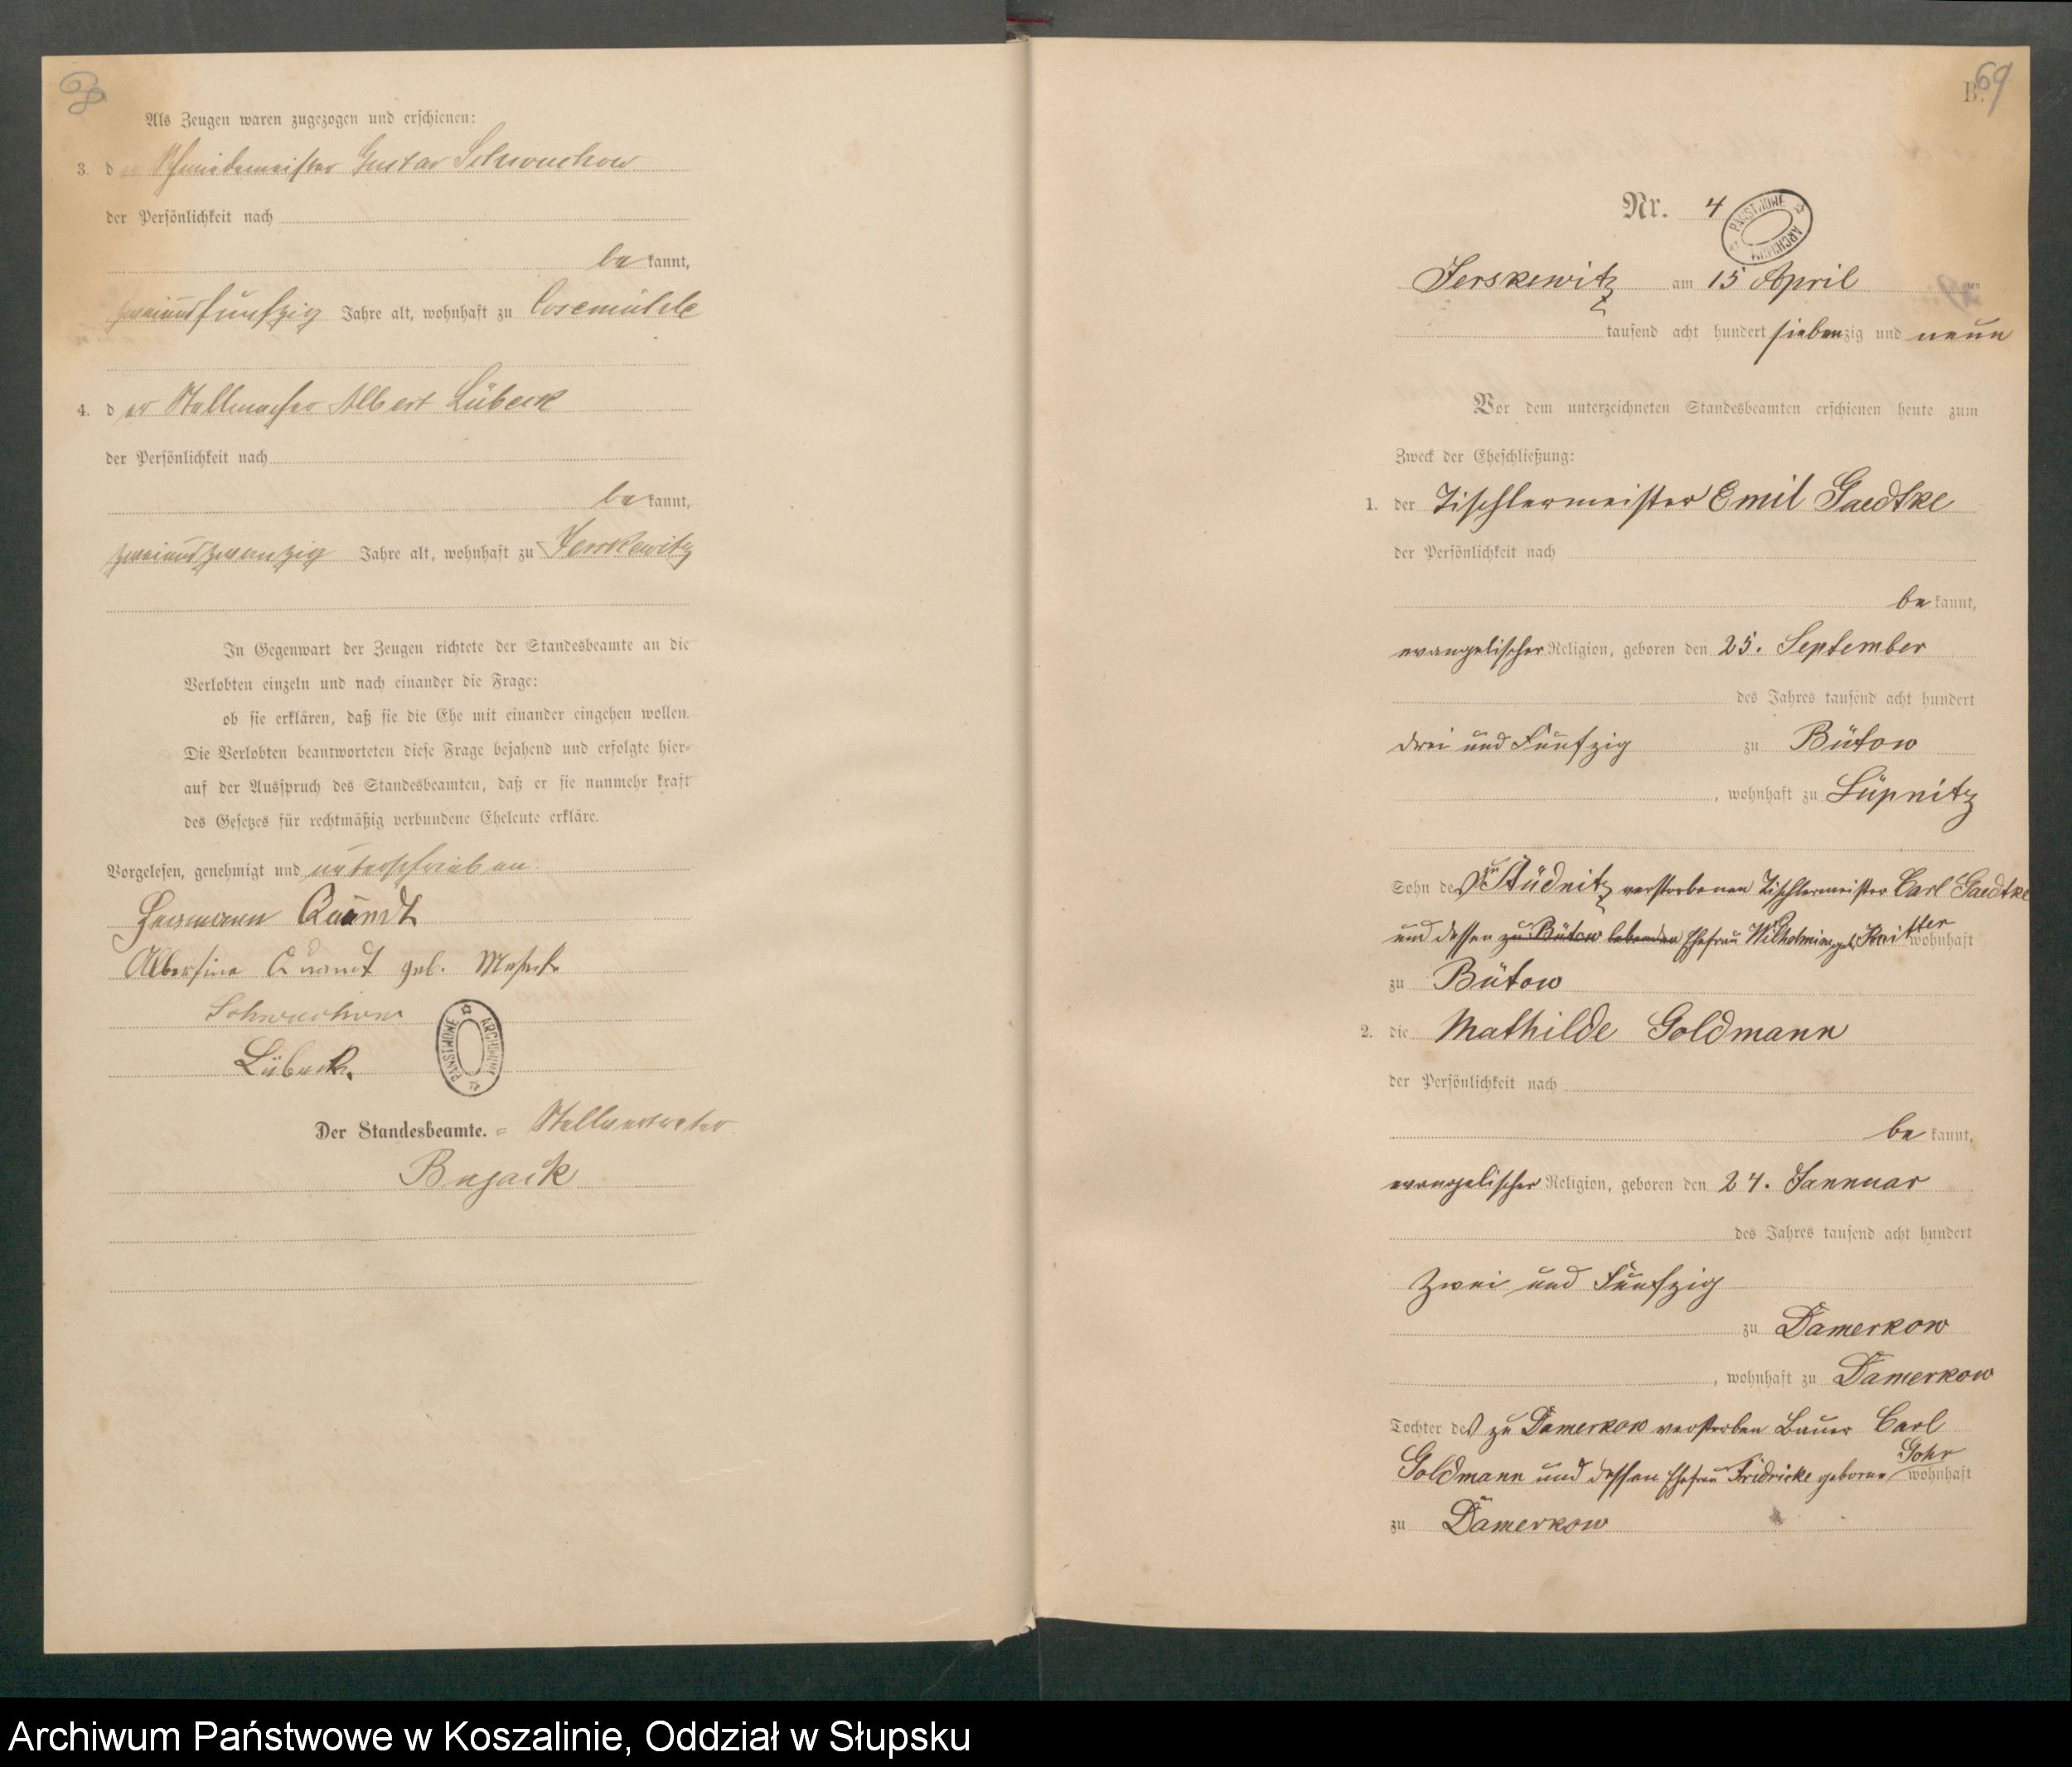 Als Zeugen waren zugezogen und erschienen:
3. der Schmiedemeister Gustav Schwuchow
der Persönlichkeit nach
be kannt,
zweiundfünfzig Jahre alt, wohnhaft zu Cosemühle
4. der Stellmacher Albert Lübeck
der Persönlichkeit nach
be kannt,
zweiundzwanzig Jahre alt, wohnhaft zu Jerskewitz
In Gegenwart der Zeugen richtete der Standesbeamte an die
Verlobten einzeln und nach einander die Frage:
ob sie erklären, daß sie die Ehe mit einander eingehen wollen.
Die Verlobten beantworteten diese Frage bejahend und erfolgte hier-
auf der Ausspruch des Standesbeamten, daß er sie nunmehr kraft
des Gesetzes für rechtmäßig verbundene Eheleute erkläre.
Vorgelesen, genehmigt und unterschrieben
Hermann Quandt
Albertine Quandt geb.
Schwuchow
Lübeck.
PAŃSTWOWE ARCHIWUM
Der Standesbeamte. = Stellvertreter
Bugack
B. 69
Nr. 4
PAŃSTWOWE ARCHIWUM
Jerskewitz am 15 April ten
tausend acht hundert siebenzig und neun
Vor dem unterzeichneten Standesbeamten erschienen heute zum
Zweck der Eheschließung:
1. der Tischlermeister Emil Gaedtke
der Persönlichkeit nach
be kannt,
evangelischer Religion, geboren den 25. September
des Jahres tausend acht hundert
drei und Fünfzig zu Bütow
, wohnhaft zu Lüpnitz
Sohn des zu Stüdnitz verstorbenen Tischlermeister Carl Gaedtke
und dessen zu Bütow lebenden Ehefrau Wilhelmine geb. Knitter wohnhaft
zu Bütow
2. die Mathilde Goldmann
der Persönlichkeit nach
be kannt,
evangelischer Religion, geboren den 24. Jannuar
des Jahres tausend acht hundert
Zwei und Fünfzig
zu Damerkow
, wohnhaft zu Damerkow
Tochter des zu Damerkow verstorben Bauer Carl
Goldmann und dessen Ehefrau Fridricke geborne Gohr wohnhaft
zu Damerkow
Archiwum Państwowe w Koszalinie, Oddział w Słupsku